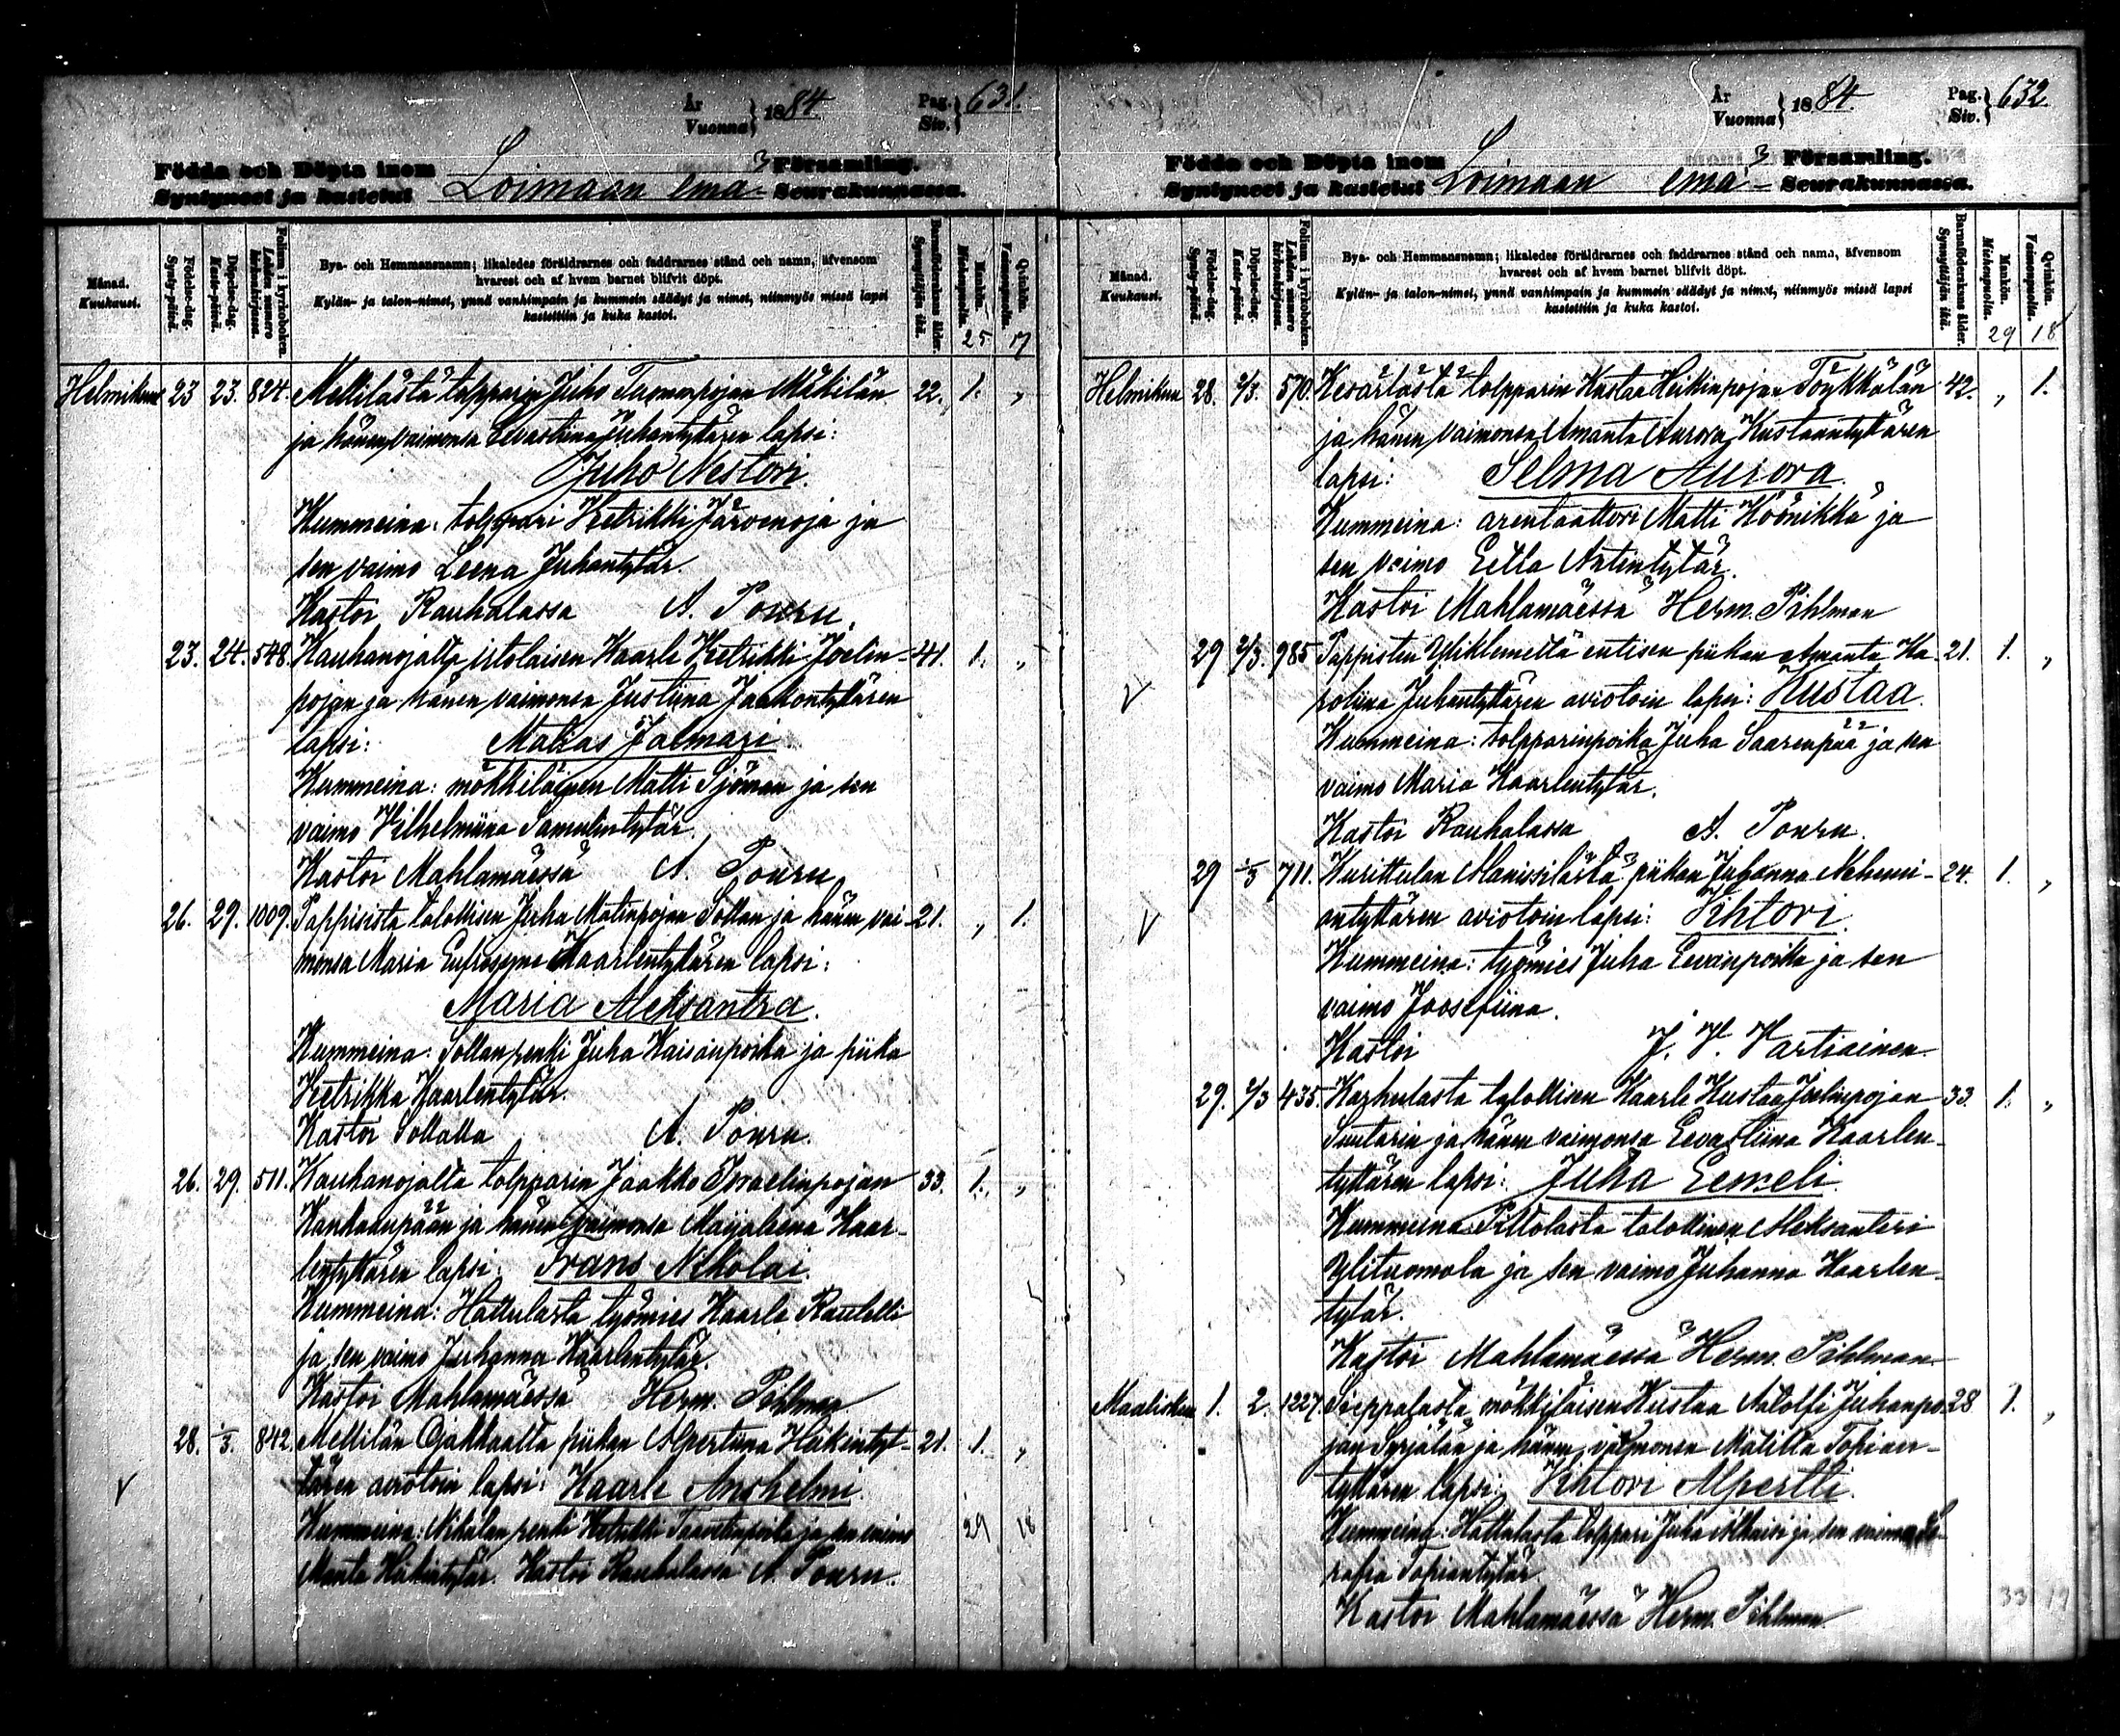 År
Vuonna } 1884.
Pag.
Siv. } 631.
Födda och Döpta inom
Syntyneet ja kastetut
Loimaan emä-
Församling.
Seurakunnassa.
Månad.
Kuukausi.
Födelse-dag.
Synty-päivä.
Döpelse-dag.
Kaste-päivä.
Folium i kyrkoboken.
Lehden numero kirkonkirjassa.
Bya- och Hemmansnamn; likaledes föräldrarnes och faddrarnes stånd och namn, äfvensom
hvarest och af hvem barnet blifvit döpt.
Kylän- ja talon-nimet, ynnä vanhimpain ja kummein säädyt ja nimet, niinmyös missä lapsi
kastettiin ja kuka kastoi.
Barnaföderskans ålder.
Synnyttäjän ikä.
Mankön.
Miehenpuolia.
25
Qvinkön.
Vaimonpuolia.
17
Helmikuu 23 23. 824. Mellilästä torpparin Juho Tuomaspojan Mäkilän 22. 1. „
ja hänen vaimonsa Eevastiina Juhantyttären lapsi:
Juho Nestori.
Kummeina: torppari Ketrikki Järvenoja ja
sen vaimo Leena Juhantytär.
Kastoi Rauhalassa A. Pouru.
23. 24. 548. Kauhanojalta itolaisen Kaarle Ketrikki Joelin- 41. 1. „
pojan ja hänen vaimonsa Justiina Jaakontyttären
lapsi: Matias Jalmari
Kummeina: mökkiläinen Matti Sjöman ja sen
vaimo Vilhelmiina Samulintytär.
Kastoi Mahlamäessä A. Pouru.
26. 29. 1009. Pappisista talollisen Juha Matinpojan Sollan ja hänen vai- 21. „ 1.
monsa Maria Eufrosyne Kaarlentyttären lapsi:
Maria Aleksantra.
Kummeina: Sollan renki Juha Kaisanpoika ja piika
Ketrikka Kaarlentytär.
Kastoi Sollalla A. Pouru.
26. 29. 511. Kauhanojalta torpparin Jaakko Israelinpojan 33. 1. „
Kankaanpään ja hänen vaimonsa Maijaleena Kaar-
lentyttären lapsi: Frans Nikolai.
Kummeina: Hattulasta työmies Kaarle Rautelli
ja sen vaimo Juhanna Kaarlentytär.
Kastoi Mahlamäessä Herm. Pihlman
28. 1/3. 842. Mellilän Ojakkaalta piikan Alpertiina Heikintyt- 21. 1. „
tären aviotoin lapsi: Kaarle Anshelmi.
Kummeina: Nihalan renki Ketrikki Taavetinpoika ja sen vaimo 29 18
Manta Heikintytär. Kastoi Rauhalassa A. Pouru.
År
Vuonna } 1884.
Pag.
Siv. } 632
Födda och Döpta inom
Syntyneet ja kastetut
Loimaan emä-
Församling.
Seurakunnassa.
Månad.
Kuukausi.
Födelse-dag.
Synty-päivä.
Döpelse-dag.
Kaste-päivä.
Folium i kyrkoboken.
Lehden numero kirkonkirjassa.
Bya- och Hemmansnamn; likaledes föräldrarnes och faddrarnes stånd och namn, äfvensom
hvarest och af hvem barnet blifvit döpt.
Kylän- ja talon-nimet, ynnä vanhimpain ja kummein säädyt ja nimet, niinmyös missä lapsi
kastettiin ja kuka kastoi.
Barnaföderskans ålder.
Synnyttäjän ikä.
Mankön.
Miehenpuolia.
29
Qvinkön.
Vaimonpuolia.
18
Helmikuu 28. 2/3. 570. Kesärlästä torpparin Kustaa Heikinpojan Töykkälän 42. „ 1.
ja hänen vaimonsa Amanta Aurora Kustaantyttären
lapsi: Selma Aurora.
Kummeina: arentaattori Matti Köönikkä ja
sen vaimo Eetla Antintytär.
Kastoi Mahlamäessä Herm. Pihlman
29 2/3. 985 Pappisten Yliklemelä entisen piikan Amanta Ka- 21. 1. „
roliina Juhantyttären aviotoin lapsi: Kustaa.
Kummeina: torpparinpoika Juha Saarenpää ja sen
vaimo Maria Kaarlentytär.
Kastoi Rauhalassa A. Pouru.
29 1/3 711. Kurittulan Alanissilästä piikan Juhanna Nehemi- 24. 1. „
antyttären aviotoin lapsi: Vihtori.
Kummeina: työmies Juha Eevanpoika ja sen
vaimo Joosefiina.
Kastoi J. V. Vartiainen.
29. 2/3 435. Karhulasta talollisen Kaarle Kustaa Joelinpojan 33. 1. „
Suutarin ja hänen vaimonsa Eevastiina Kaarlen-
tyttären lapsi: Juha Eemeli.
Kummeina: Piltolasta talollinen Aleksanteri
Ylituomola ja sen vaimo Juhanna Kaarlen-
tytär.
Kastoi Mahlamäessä Herm. Pihlman
Maaliskuu 1. 2. 1227. Sieppalasta mökkiläisen Kustaa Aatolfi Juhanpo- 28 1. „
jan Syrjälän ja hänen vaimonsa Matilta Topian-
tyttären lapsi: Vihtori Alpertti.
Kummeina: Hattulasta torppari Juha ja sen vaimo
Topiantytär
Kastoi Mahlamäessä Herm. Pihlman
33 19